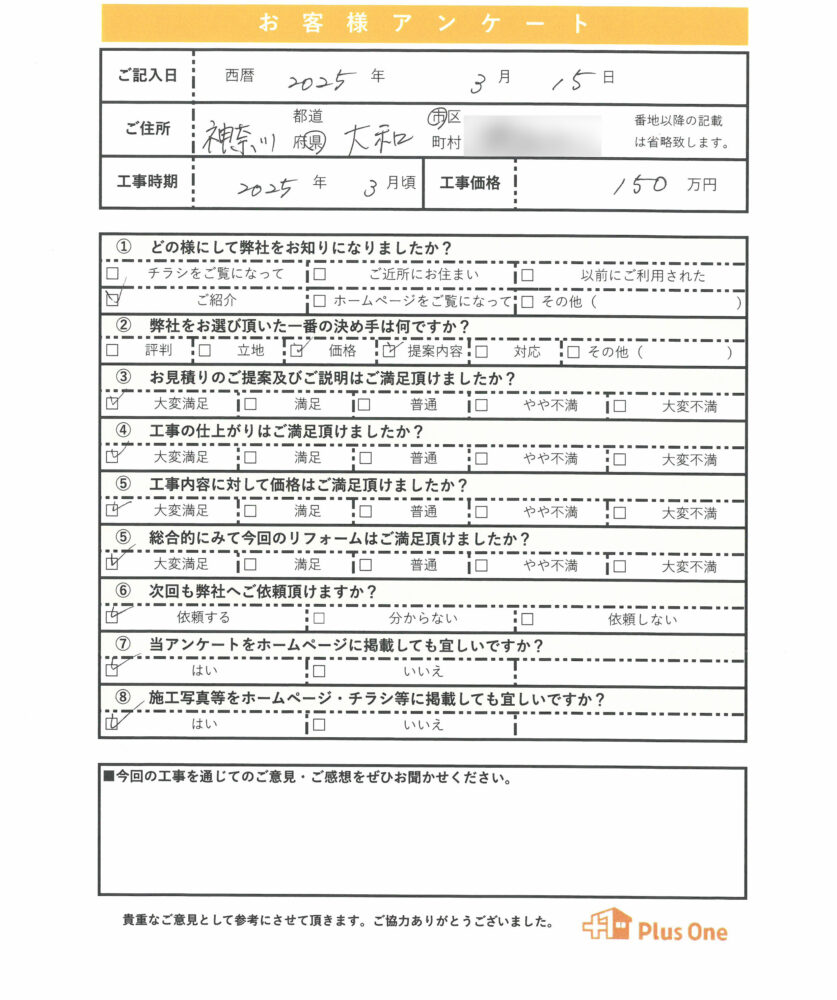 お客様アンケート
ご記入日 西暦 2025 年 3 月 15 日
ご住所 神奈川 都道府県 大和 市区町村 番地以降の記載は省略致します。
工事時期 2025 年 3 月頃 工事価格 150 万円
① どの様にして弊社をお知りになりましたか？
□ チラシをご覧になって □ ご近所にお住まい □ 以前にご利用された
☑ ご紹介 □ ホームページをご覧になって □ その他（ ）
② 弊社をお選び頂いた一番の決め手は何ですか？
□ 評判 □ 立地 ☑ 価格 ☑ 提案内容 □ 対応 □ その他（ ）
③ お見積りのご提案及びご説明はご満足頂けましたか？
☑ 大変満足 □ 満足 □ 普通 □ やや不満 □ 大変不満
④ 工事の仕上がりはご満足頂けましたか？
☑ 大変満足 □ 満足 □ 普通 □ やや不満 □ 大変不満
⑤ 工事内容に対して価格はご満足頂けましたか？
☑ 大変満足 □ 満足 □ 普通 □ やや不満 □ 大変不満
⑤ 総合的にみて今回のリフォームはご満足頂けましたか？
☑ 大変満足 □ 満足 □ 普通 □ やや不満 □ 大変不満
⑥ 次回も弊社へご依頼頂けますか？
☑ 依頼する □ 分からない □ 依頼しない
⑦ 当アンケートをホームページに掲載しても宜しいですか？
☑ はい □ いいえ
⑧ 施工写真等をホームページ・チラシ等に掲載しても宜しいですか？
☑ はい □ いいえ
■今回の工事を通じてのご意見・ご感想をぜひお聞かせください。
貴重なご意見として参考にさせて頂きます。ご協力ありがとうございました。
Plus One